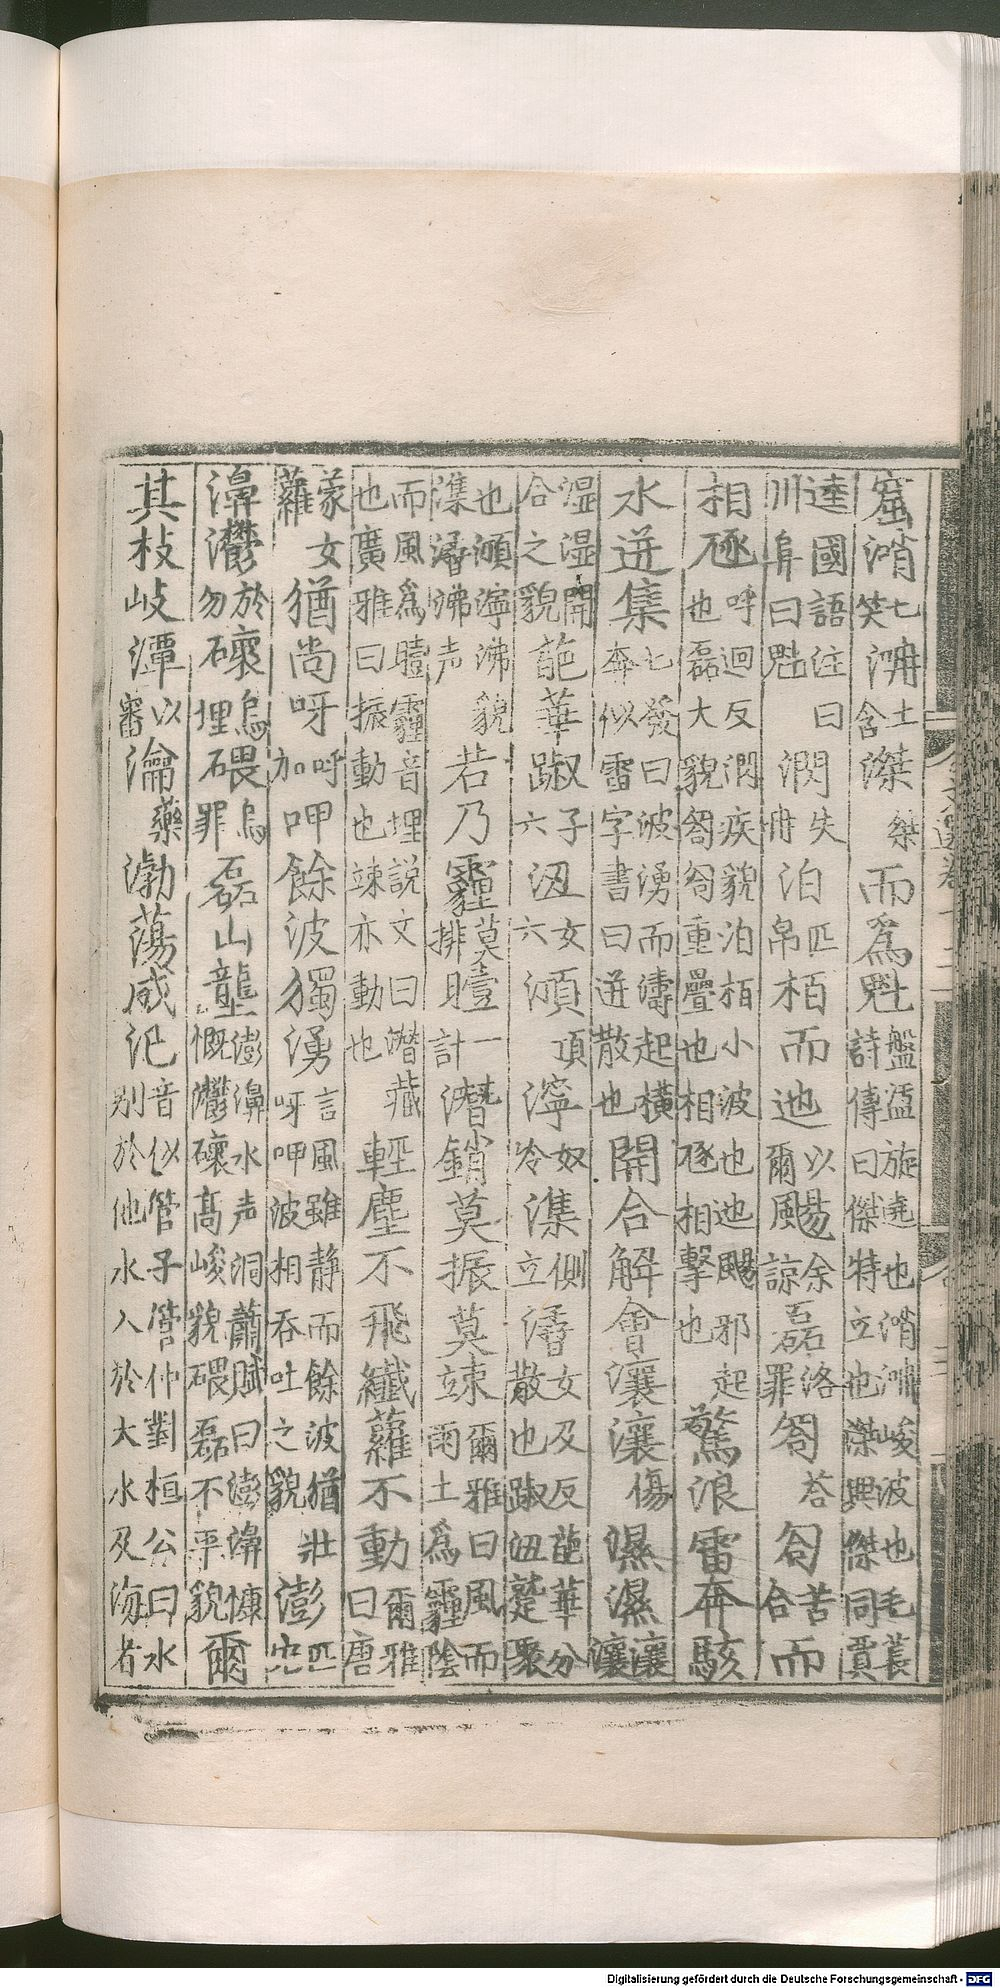 窟㴥七笑浀土含滐桀而爲魁盤盓旋遶也㴥浀峻波也毛萇詩傳曰傑特立也滐興傑同賈
逵國語注曰川阜曰魁㵎失冉泊匹帛栢而迆以爾颺余諒磊洛罪匒荅匌苦合而
相豗呼迴反㵎疾貌泊栢小波也迆颺邪起也磊大貌匒匌重疊也相豗相擊也驚浪雷奔駭
水迸集七發曰波湧而濤起橫奔似雷字書曰迸散也開合解會瀼瀼傷濕濕瀼瀼
湿湿開合之貌葩華踧子六沑女六澒頂濘奴冷潗側立㵫女及反葩華分散也踧沑蹵聚
也澒濘沸貌潗㵫沸声若乃霾莫排曀一計潛銷莫振莫竦爾雅曰風而雨土爲霾陰
而風爲曀霾音埋說文曰潛藏也廣雅曰振動也竦亦動也輕塵不飛纖蘿不動爾雅曰唐
蒙女蘿猶尚呀呼加呷餘波獨湧言風雖静而餘波猶壯呀呷波相吞吐之貌澎匹忠
濞灪於勿磙烏埋碨烏罪磊山壟澎濞水声洞蕭賦曰澎濞慷慨灪磙高峻貌碨磊不平貌爾
其枝岐潭以審瀹藥渤蕩成汜音似管子管仲對桓公曰水别於他水入於大水及海者
Digitalisierung gefördert durch die Deutsche Forschungsgemeinschaft - DFG